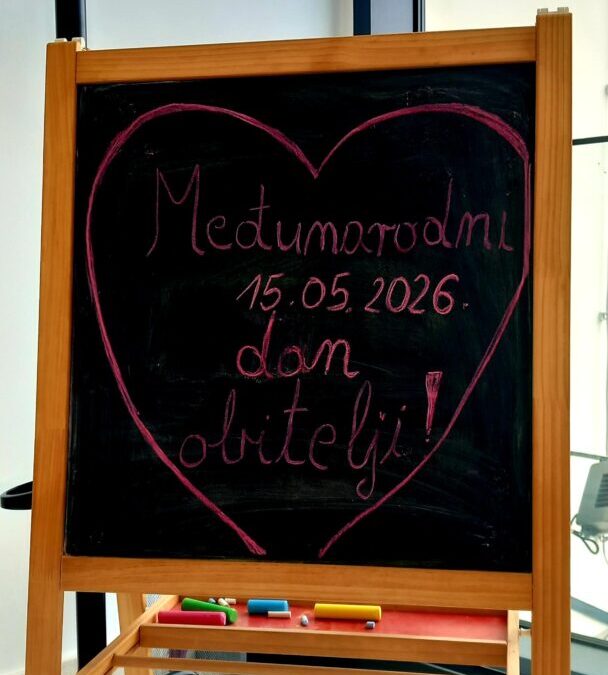 Međunarodni
15.05.2026.
dan
obitelji!